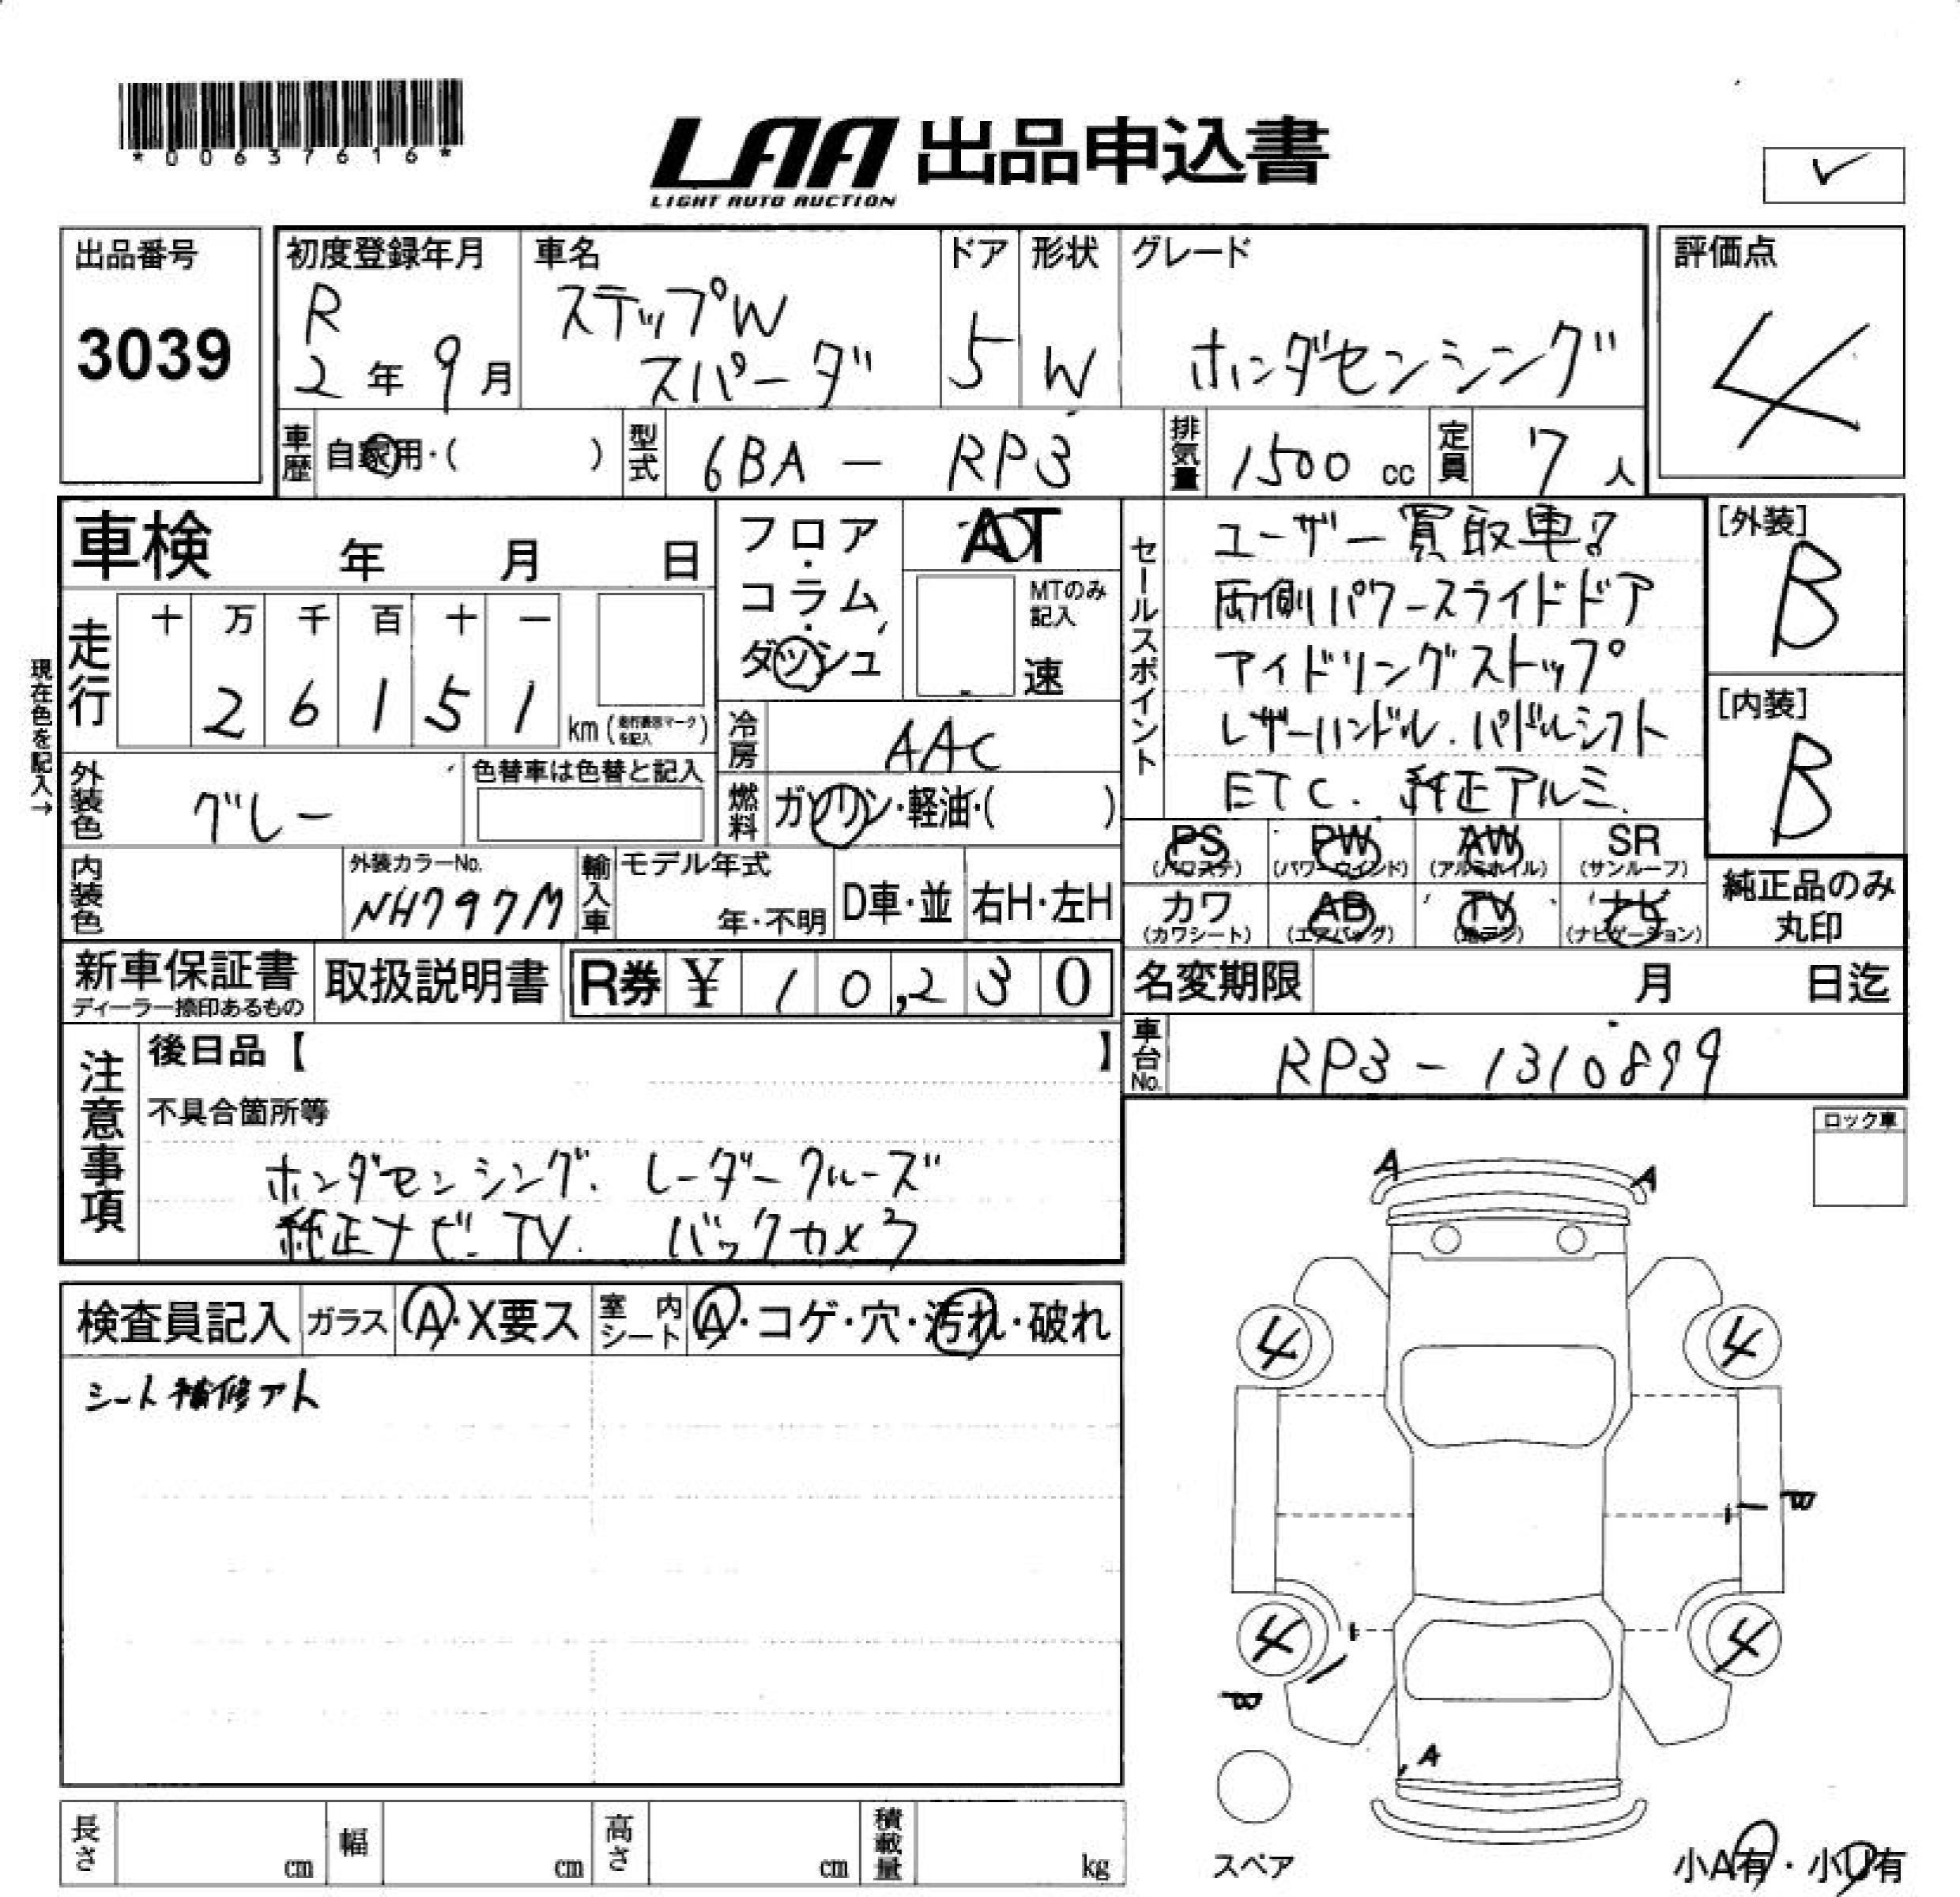 *00637616*
LAA 出品申込書
LIGHT AUTO AUCTION
✓
出品番号
3039
初度登録年月
R
2年9月
車名
ステップW
スパーダ
ドア
5
形状
W
グレード
ホンダセンシング
評価点
4
車歴
自家用・( )
型式
6BA - RP3
排気量
1500 cc
定員
7人
車検 年 月 日
現在色を記入→
走行
十 万 千 百 十 一
2 6 1 5 1
km (走行表示マークを記入)
フロア・コラム・ダッシュ
AT
MTのみ記入
速
冷房
AAC
燃料
ガソリン・軽油・( )
外装色
グレー
色替車は色替と記入
内装色
外装カラーNo.
NH797M
輸入車
モデル年式
年・不明
D車・並
右H・左H
セールスポイント
ユーザー買取車!
両側パワースライドドア
アイドリングストップ
レザーハンドル.パドルシフト
ETC. 純正アルミ.
[外装]
B
[内装]
B
PS
(パワステ)
PW
(パワーウインド)
AW
(アルミホイル)
SR
(サンルーフ)
カワ
(カワシート)
AB
(エアバッグ)
TV
(地デジ)
ナビ
(ナビゲーション)
純正品のみ
丸印
新車保証書
ディーラー捺印あるもの
取扱説明書
R券 ¥ 10,230
名変期限 月 日迄
車台No.
RP3 - 1310899
注意事項
後日品【 】
不具合箇所等
ホンダセンシング. レーダークルーズ
純正ナビ. TV. バックカメラ
ロック車
検査員記入
ガラス
A・X要ス
室内シート
A・コゲ・穴・汚れ・破れ
シート補修アト
A A
4 4
B
4 4
B
A
スペア
小A有・小U有
長さ cm
幅 cm
高さ cm
積載量 kg